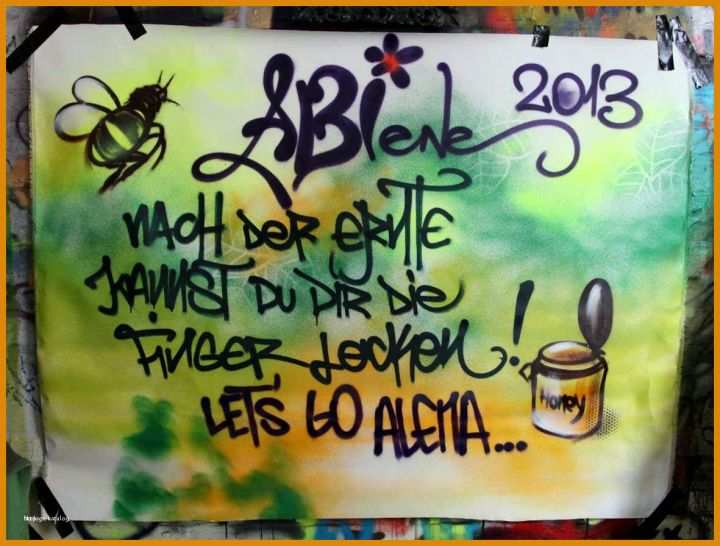 ABIene 2013
NACH DER ERNTE
KANNST DU DIR DIE
FINGER LecKeN!
Honey
LET'S GO ALENA...